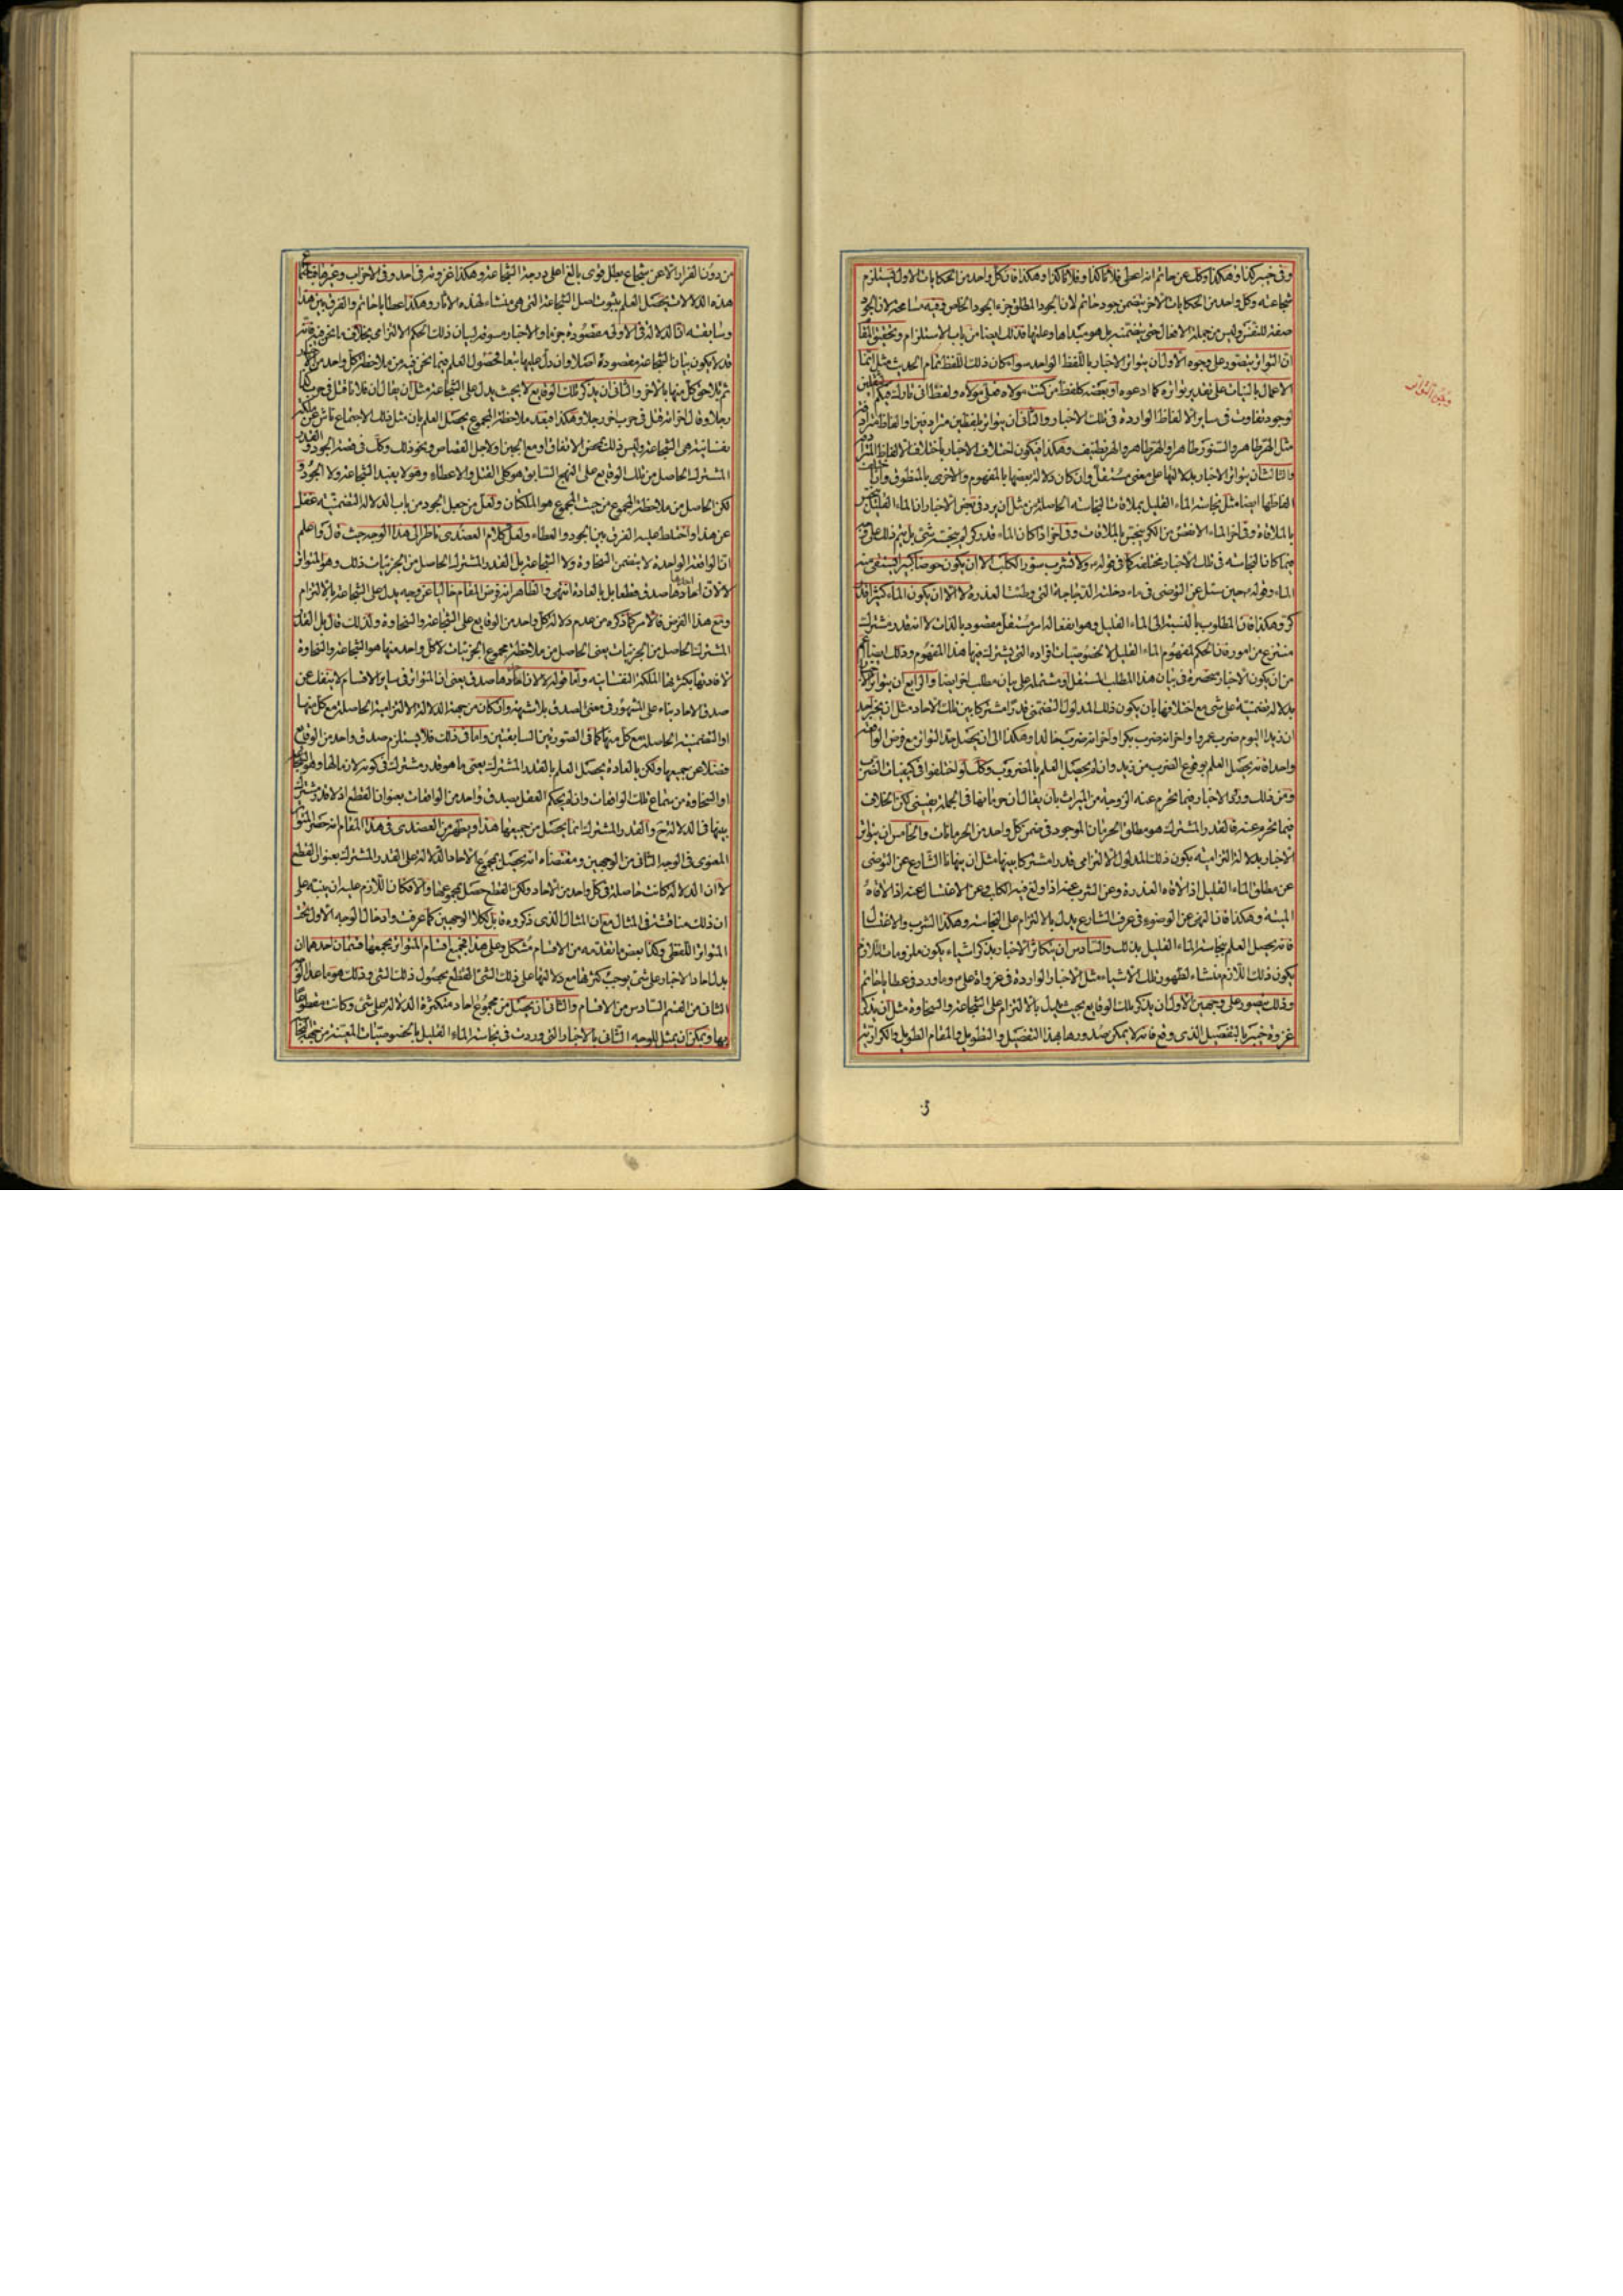 وفى خيبر كذا وهكذا وكك عن حاتم انه اعطى فلانا كذا وفلانا كذا وهكذا فان كل واحد من الحكايات الاول يستلزم
شجاعته وكل واحد من الحكايات الاخر يتضمن جود حاتم لان الجود المطلق جزء الجود الخاص وفيه مسامحة لان الجود
صفة للنفس وليس من جملة الافعال حتى يتضمنه بل هو مبدأها وعلتها فذلك ايضا من باب الاستلزام وتحقيق المقام
ان التواتر يتصور على وجوه الاول ان يتواتر الاخبار باللفظ الواحد سواء كان ذلك اللفظ تمام الحديث مثل انما
الاعمال بالنيات على تقدير تواتره كما ادعوه او بعضه كلفظ من كنت مولاه فعلى مولاه ولفظ انى تارك فيكم الثقلين
لوجود تفاوت فى ساير الالفاظ الواردة فى تلك الاخبار والثانى ان يتواتر بلفظين مترادفين او الفاظ مترادفة
مثل الهر طاهر والسنور طاهر او الهر طاهر والهر نظيف وهكذا فيكون اختلاف الاخبار باختلاف الالفاظ المترادفة
والثالث ان يتواتر الاخبار بدلالتها على معنى مستقل وان كان دلالة بعضها بالمفهوم والاخرى بالمنطوق وان اختلف
الفاظها ايضا مثل نجاسة الماء القليل بملاقات النجاسة الحاصلة من مثل ان يرد فى بعض الاخبار ان الماء القليل ينجس
بالملاقاة وفى اخر الماء الانقص من الكر ينجس بالملاقات وفى اخر اذا كان الماء قدر كر لم ينجسه شئ بل يتم ذلك على
فيما كانا النجاسة فى تلك الاخبار مختلفة كما فى قوله ولا تشرب سؤر الكلب الا ان يكون حوضا كبيرا يستقى منه
الماء وقوله حين سئل عن التوضى فى ماء دخلته الدجاجة التى وطئت العذرة لا الا ان يكون الماء كثيرا قدر
كر وهكذا فان المطلوب بالنسبة الى الماء القليل وهو انفعاله امر مستقل مقصود بالذات لا انه قدر مشترك
منتزع من امور فان الحكم لمفهوم الماء القليل لا لخصوصيات افراده التى يشترك فيها هذا المفهوم وذلك ايضا اعم
من ان يكون الاخبار منحصرة فى بيان هذا المطلب المستقل او مشتملة على بيان مطلب اخر ايضا والرابع ان يتواتر الاخبار
بدلالة تضمنية على شئ مع اختلافها بان يكون ذلك المدلول التضمنى قدرا مشتركا بين تلك الاحاد مثل ان يخبر احد
ان زيدا اليوم ضرب عمروا واخر انه ضرب بكرا واخر انه ضرب خالدا وهكذا الى ان يحصل حد التواتر مع فرض الواقعة
واحدا فانه يحصل العلم بوقوع الضرب من زيد وان لم يحصل العلم بالمضروب وكك لو اختلفوا فى كيفيات الضرب
ومن ذلك ورود الاخبار فيما تحرم عنه الزوجة من الميراث بان يقال ان حرمانها فى الجملة يقينى لكن الخلاف
فيما تحرم عنه فالقدر المشترك هو مطلق الحرمان الموجود فى ضمن كل واحد من الحرمانات والخامس ان يتواتر
الاخبار بدلالة التزامية يكون ذلك المدلول الالتزامى قدرا مشتركا بينها مثل ان ينهانا الشارع عن التوضى
عن مطلق الماء القليل اذا لاقاه العذرة وعن الشرب عنه اذا ولغ فيه الكلب وعن الاغتسال عنه اذا لاقاه
الميتة وهكذا فان النهى عن الوضوء فى عرف الشارع يدل بالالتزام على النجاسة وهكذا الشرب والاغتسال
فانه يحصل العلم بنجاسة الماء القليل بذلك والسادس ان يتكاثر الاخبار بذكر اشياء يكون ملزومات للازم
يكون ذلك اللازم منشاء لظهور تلك الاشياء مثل الاخبار الواردة فى غزوات على وما ورد فى عطايا حاتم
وذلك يتصور على وجهين الاول ان يذكر تلك الوقايع بحيث يدل بالالتزام على الشجاعة والسخاوة مثل ان يذكر
غزوة خيبر بالتفصيل الذى وقع فانه لا يمكن صدورها بهذا التفصيل والتطويل والمقام الطويل والكرات
تحقيق التواتر
من دون الفرار الا عن شجاع بطل قوى بالغ اعلى درجة الشجاعة وهكذا غزوته فى احد وفى الاحزاب وغيرها فكلما
هذه الدلالات يحصل العلم بثبوت اصل الشجاعة التى هى منشاء لهذه الاثار وهكذا عطايا حاتم والفرق بين هذا
وسابقه ان الدلالة فى الاول مقصودة جزما والاخبار مسوقة لبيان ذلك الحكم الالتزامى بخلاف ما نحن فيه فانه
قد لا يكون بيان الشجاعة مقصودة اصلا وان دل عليها تبعا لحصول العلم فيما نحن فيه من ملاحظة كل واحد من
ثم تلاحق كل منها بالاخر والثانى ان يذكر تلك الوقايع لا بحيث يدل على الشجاعة مثل ان يقال ان فلانا قتل فى حرب
رجلا وقال اخر انه قتل فى حرب اخر رجلا وهكذا فبعد ملاحظة المجموع يحصل العلم بان مثل ذلك الاجتماع ناش عن ملكة
نفسانية هى الشجاعة وليس ذلك بمحض الاتفاق او مع الجبن او لاجل القصاص ونحو ذلك وكك فى قضية الجود والقدر
المشترك الحاصل من تلك الوقايع على النهج السابق هو كلى القتل والاعطاء وهو لا يفيد الشجاعة ولا الجود
لكن الحاصل من ملاحظة المجموع من حيث المجموع هو الملكتان ولعل من جعل الجود من باب الدلالة التضمنية غفل
عن هذا واختلط عليه الفرق بين الجود والعطاء ولعل كلام العضدى ناظر الى هذا الوجه حيث قال واعلم
ان الواقعة الواحدة لا يتضمن السخاوة ولا الشجاعة بل القدر المشترك الحاصل من الجزئيات ذلك وهو المتواتر
لا لان احادها صدق قطعا بل بالعادة انتهى والظاهر انه فرض المقام خاليا عن وجه يدل على الشجاعة بالالتزام
ومع هذا الفرض فالامر كما ذكره من عدم دلالة كل واحد من الوقايع على الشجاعة والسخاوة ولذلك قال بل القدر
المشترك الحاصل من الجزئيات يعنى الحاصل من ملاحظة مجموع الجزئيات لا كل واحد منها هو الشجاعة والسخاوة
لافادتها بكثرتها الملكة النفسانية واما قوله لا لان احادها صدق يعنى ان المتواتر فى ساير الاقسام لا ينفك عن
صدق الاحاد بناء على المشهور فى معنى الصدق بلا شبهة وان كان من جهة الدلالة الالتزامية الحاصلة مع كل منها
او التضمنية الحاصلة مع كل منها كما فى الصورتين السابقتين واما فى ذلك فلا يستلزم صدق واحد من الوقايع
فضلا عن جميعها ولكن بالعادة يحصل العلم بالقدر المشترك يعنى ما هو قدر مشترك فى كونه لازما لها وهو الشجاعة
او السخاوة من سماع تلك الواقعات وان لم يحكم العقل بصدق واحد من الواقعات بعنوان القطع اذ لا قدر مشترك
بينها فى الدلالة ح والقدر المشترك انما يحصل من جميعها هذا من العضدى فى هذا المقام انه حصر المتواتر
المعنوى فى الوجه الثانى من الوجهين ومقتضاه انه يحصل بمجموع الاحاد الدلالة على القدر المشترك بعنوان القطع
لا ان الدلالة كانت حاصلة فى كل واحد من الاحاد ولكن القطع حصل بمجموعها والا فكان اللازم عليه ان ينبه على
ان ذلك مناقشة فى المثال مع ان المثال الذى ذكروه قابل لكلا الوجهين كما عرفت وادخال الوجه الاول تحت
المتواتر اللفظى وكذا بعض ما تقدمه من الاقسام مشكل وعلى هذا فجميع اقسام المتواتر يجمعها قسمان احدهما ان
يدل احاد الاخبار على شئ يوجب كثرتها مع دلالتها على ذلك الشئ القطع بحصول ذلك الشئ وذلك هو ما عدا الوجه
الثانى من القسم السادس من الاقسام والثانى ان يحصل من مجموع احاد متكثرة الدلالة على شئ وكانت مقطوعا
بها ويمكن ان يمثل للوجه الثانى بالاخبار التى وردت فى نجاسة الماء القليل بالخصوصيات المعينة من جهة